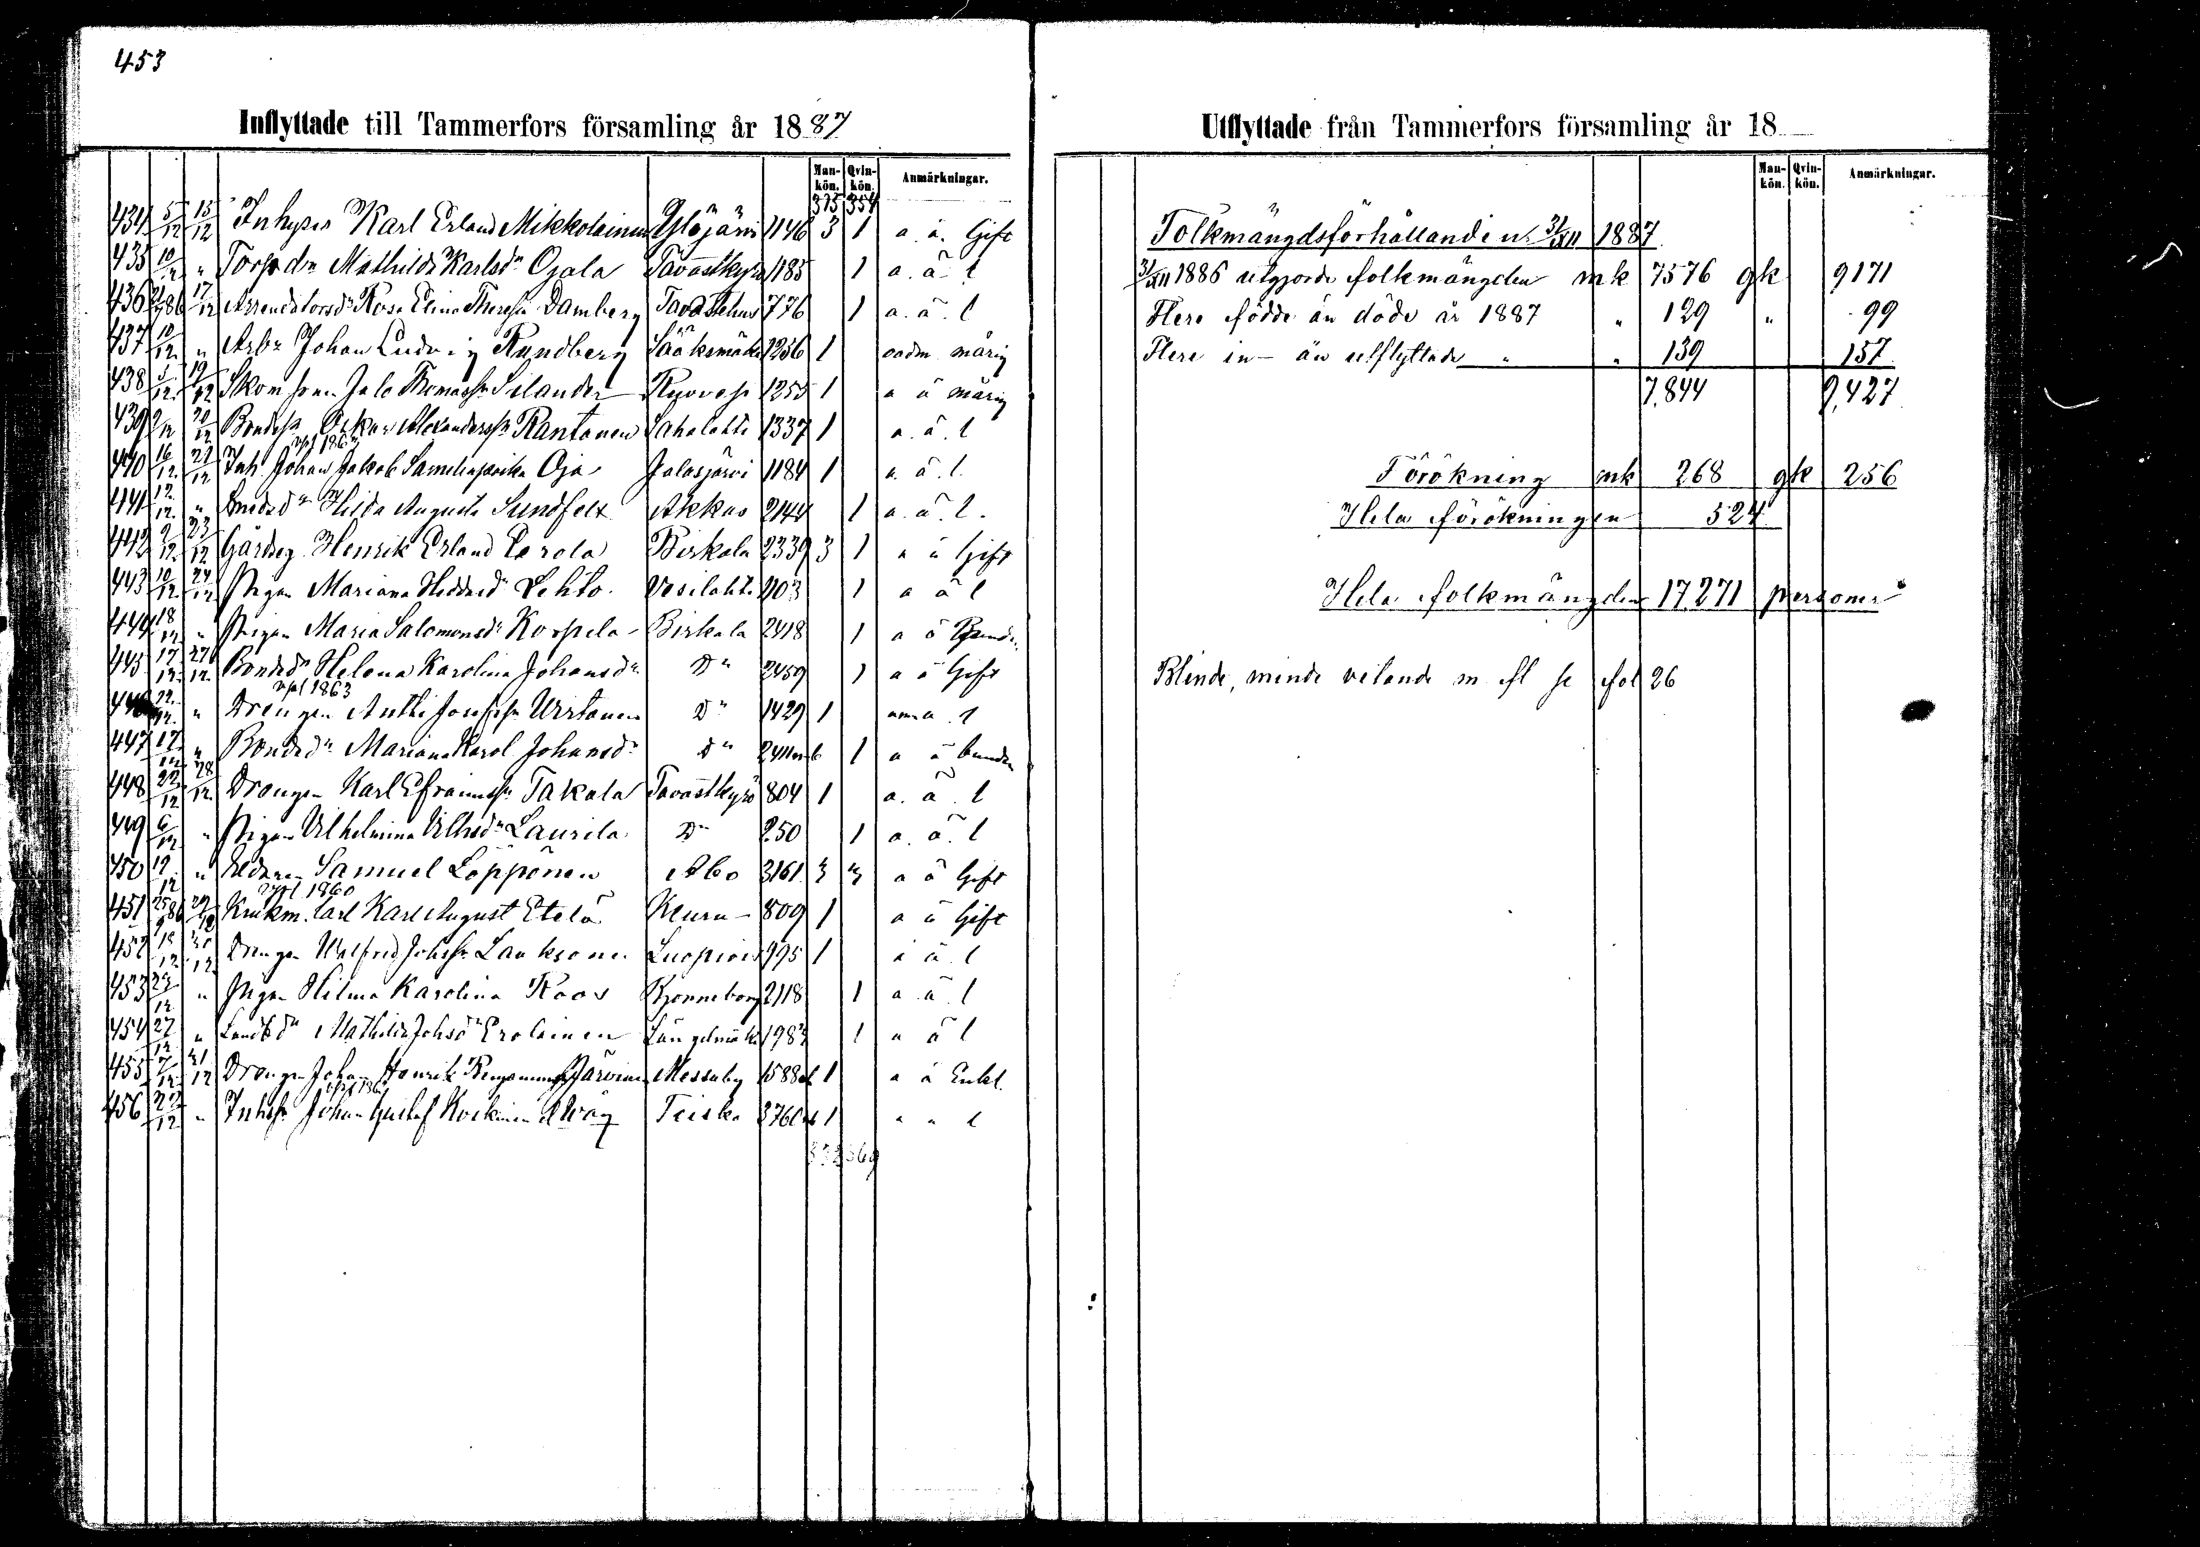 453
Inflyttade till Tammerfors församling år 1887
Man-kön. Qvin-kön. Anmärkningar.
375 354
434 5/12 15/12 Inhyses Karl Erland Mikkolainen Ylöjärvi 1146 3 1 a. ä. Gift
435 10/12 " Torpdr Mathilda Karlsdr Ojala Tavastkyrö 1185 1 a. ä. l
436 17/12 Arrendatorsdr Rosa Elina Theresia Damberg Tavastehus 776 1 a. ä. l
437 10/12 " Arbr Johan Ludvig Rundberg Sääksmäki 1256 1 oadm. mårig
438 5/12 19/12 Skom Jalo Thomasson Silander Ruovesi 1255 1 a ä mårig
439 2/12 20/12 Bondes Oskar Alexandersson Rantanen Sahalahti 1337 1 a. ä. l
440 16/12 21/12 Inh. Johan Jakob Oja Jalasjärvi 1184 1 a. ä. l.
441 12/12 " Hilda Augusta Sundfelt Akkas 2144 1 a. ä. l.
442 9/12 23/12 Gårdseg. Henrik Erland Perola Birkala 2339 3 1 a ä Gift
443 10/12 24/12 Pigan Mariana Lehto Vesilahti 1103 1 a ä l
444 18/12 " Pigan Maria Salomonsdr Korpela Birkala 2418 1 a ä
445 17/12 27/12 Bondedr Helena Karolina Johansdr Do 2459 1 a ä Gift
vpl 1863
446 22/12 " Drengen Antti Josefsson Wirtanen Do 1429 1 l
447 17/12 " Bondedr Mariana Karol Johansdr Do 2411 1 a ä bunden
448 22/12 28/12 Drengen Karl Efraimsson Takala Tavastkyrö 804 1 a. ä. l
449 6/12 " Pigan Vilhelmina Vilhsdr Laurila Do 250 1 a. ä. l
450 19/12 " Samuel Löppönen Åbo 3161 3 3 a ä Gift
vpl 1860
451 29/12 Krukm. Karl August Etelä Keuru 809 1 a ä Gift
452 18/12 30/12 Drengen Walfrid Johsson Lauksonen Luopiois 995 1 a ä. l
453 23/12 " Pigan Hilma Karolina Roos Björneborg 2118 1 a. ä. l
454 27/12 " Mathilda Johsdr Erolainen Längelmäki 1983 1 a ä l
455 7/12 31/12 Drengen Johan Henrik Järvinen Messuby 1588 1 a ä Enkl.
456 22/12 " Johan Gustaf Teisko 3760 1 " " l
569
Utflyttade från Tammerfors församling år 18
Man-kön. Qvin-kön. Anmärkningar.
Folkmängdsförhållande 31/XII 1887
31/XII 1886 utgjorde folkmängden mk 7576 qk 9171
Flere födde än döde år 1887 " 129 " 99
Flere in- än utflyttade " " 139 157
7,844 9,427
Förökning mk 268 qk 256
Hela förökningen 524
Hela folkmängden 17,271 personer
Blinde, minde vetande m fl se fol 26